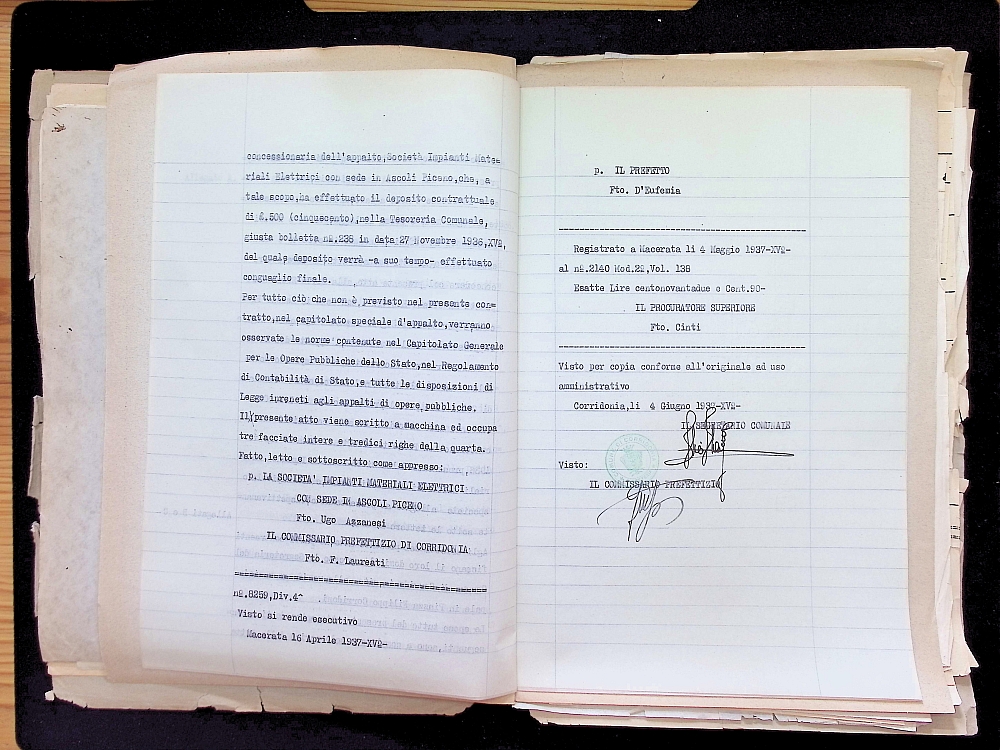 concessionaria dell'appalto,Società Impianti Mate=
riali Elettrici con sede in Ascoli Piceno,che, a
tale scopo,ha effettuato il deposito contrattuale
di £.500 (cinquecento),nella Tesoreria Comunale,
giusta bolletta nº.236 in data 27 Novembre 1936,XVº,
del quale deposito verrà -a suo tempo- effettuato
conguaglio finale.
Per tutto ciò che non è previsto nel presente con=
tratto,nel capitolato speciale d'appalto,verranno
osservate le norme contenute nel Capitolato Generale
per le Opere Pubbliche dello Stato,nel Regolamento
di Contabilità di Stato,e tutte le disposizioni di
Legge inreneti agli appalti di opere pubbliche.
Il presente atto viene scritto a macchina ed occupa
tre facciate intere e tredici righe della quarta.
Fatto,letto e sottoscritto come appresso:
p. LA SOCIETA' IMPIANTI MATERIALI ELETTRICI
CON SEDE IN ASCOLI PICENO
Fto. Ugo Azzanesi
IL COMMISSARIO PREFETTIZIO DI CORRIDONIA
Fto. F. Laureati
nº.8259,Div.4^
Visto si rende esecutivo
Macerata 16 Aprile 1937-XVº-
p. IL PREFETTO
Fto. D'Eufemia
Registrato a Macerata li 4 Maggio 1937-XVº-
al nº.2140 Mod.22,Vol. 138
Esatte Lire centonovantadue e Cent.90-
IL PROCURATORE SUPERIORE
Fto. Cinti
Visto per copia conforme all'originale ad uso
amministrativo
Corridonia,li 4 Giugno 193 -XVº-
IL SEGRETARIO COMUNALE
Visto:
IL COMMISSARIO PREFETTIZIO